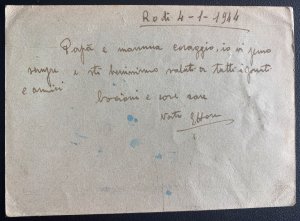 Rodi 4-1-1944
Papà e mamma coraggio, io vi penso
sempre e sto benissimo saluti a tutti i parenti
e amici
bacioni e cose care
Vostro Ettore